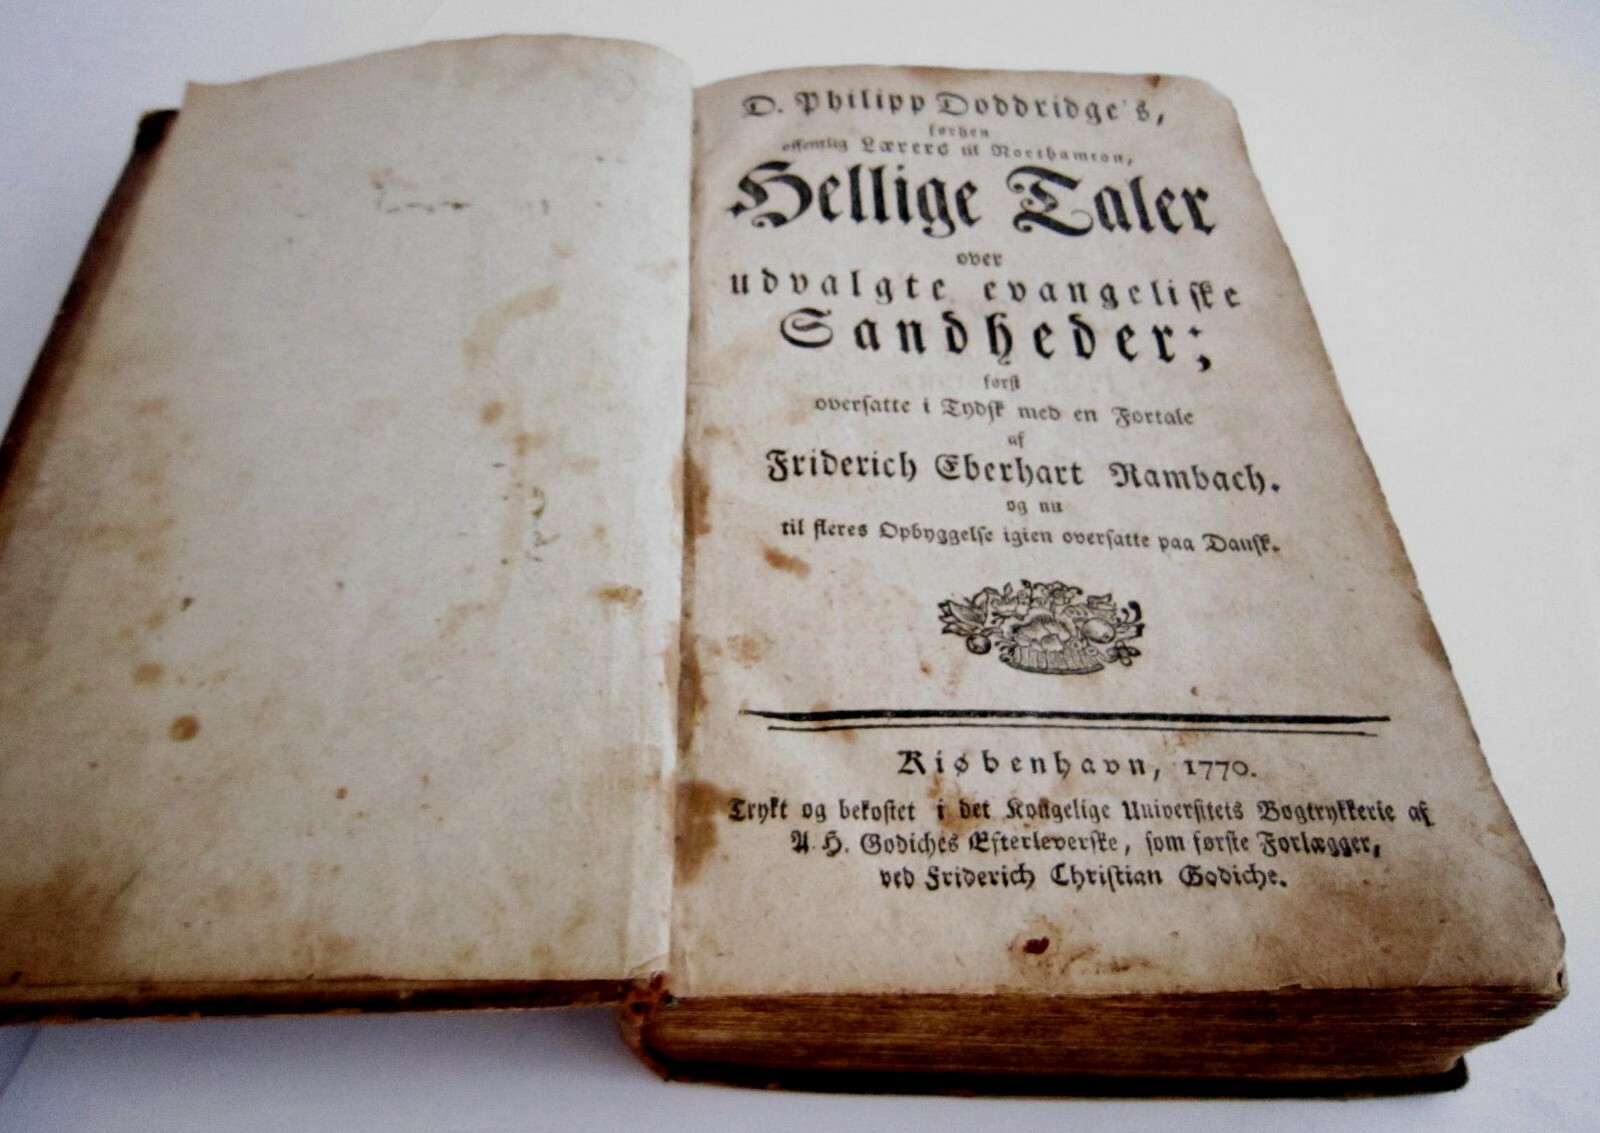 D. Philipp Doddridge's,
forhen
offentlig Lærers til Northamton,
Hellige Taler
over
udvalgte evangeliske
Sandheder;
først
oversatte i Tydsk med en Fortale
af
Friderich Eberhart Rambach.
og nu
til fleres Opbyggelse igien oversatte paa Dansk.
Kiøbenhavn, 1770.
Trykt og bekostet i det Kongelige Universitets Bogtrykkerie af
A. H. Godiches Efterleverske, som første Forlægger,
ved Friderich Christian Godiche.